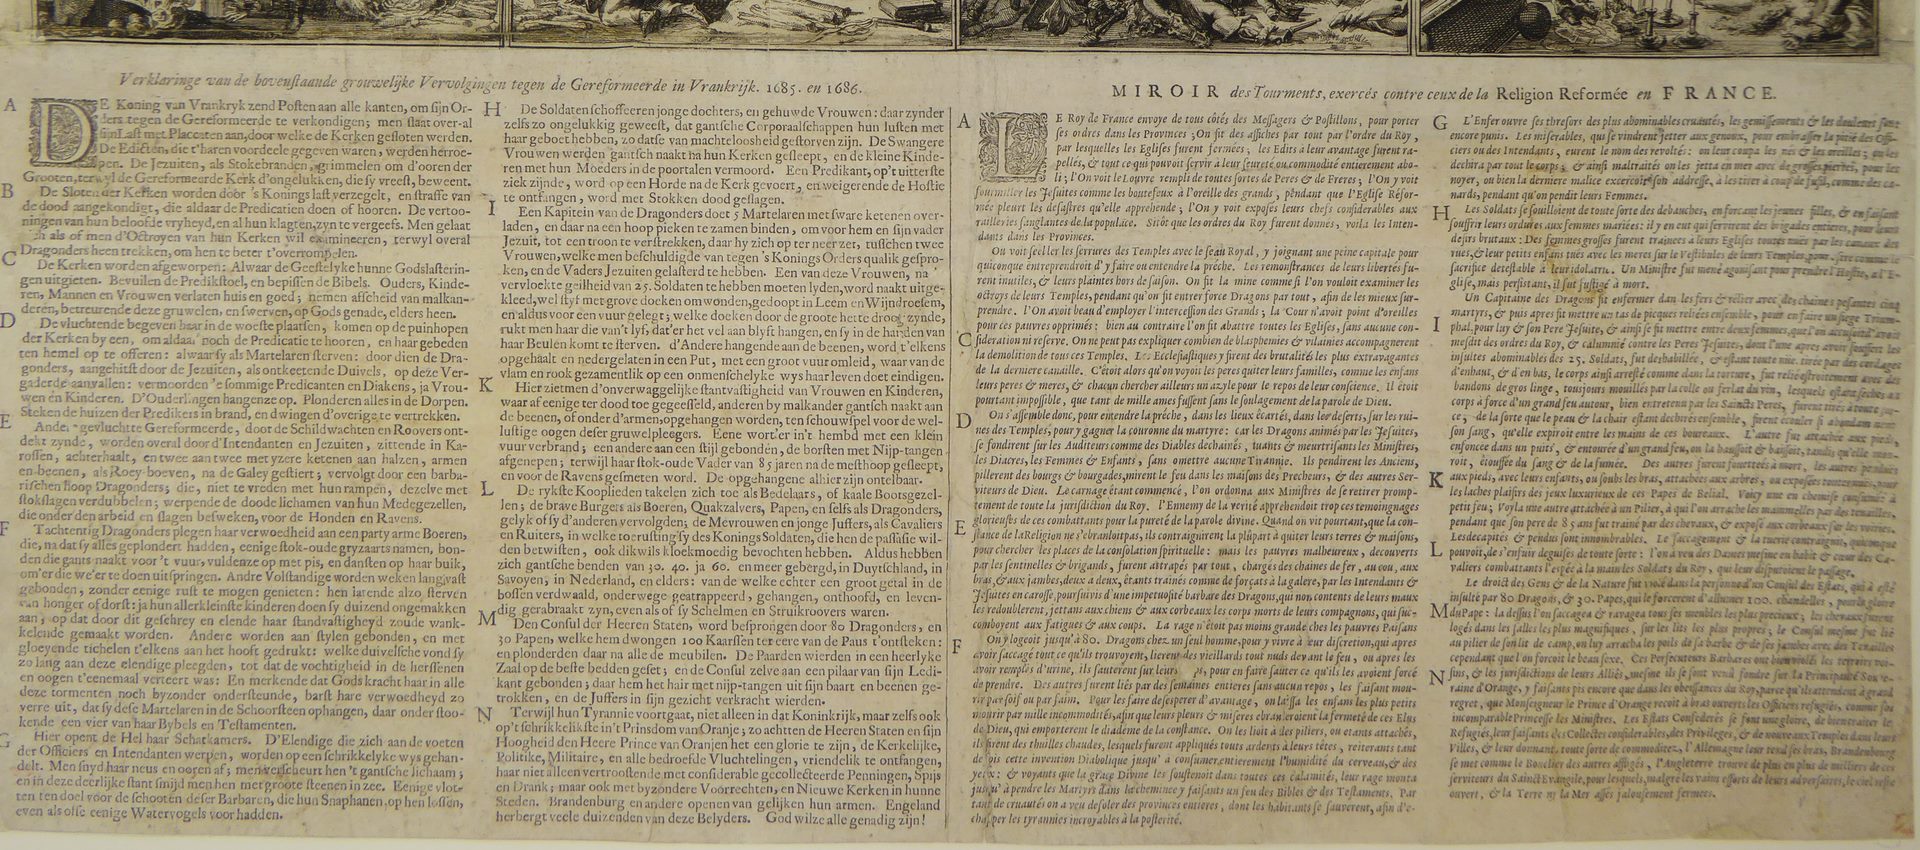 Verklaringe van de bovenstaande grouwelijke Vervolgingen tegen de Gereformeerde in Vrankrijk. 1685. en 1686.
A
DE Koning van Vrankryk zend Posten aan alle kanten, om sijn Or-
ders tegen de Gereformeerde te verkondigen; men slaat over-al
sijn Last met Placcaten aan, door welke de Kerken gesloten werden.
De Edicten, die t'haren voordeele gegeven waren, werden herroe-
pen. De Jezuiten, als Stokebranden, grimmelen om d'ooren der
Grooten, terwyl de Gereformeerde Kerk d'ongelukken, die sy vreest, beweent.
B
De Sloten der Kerken worden door 's Konings last verzegelt, en straffe van
de dood aangekondigt, die aldaar de Predicatien doen of hooren. De vertoo-
ningen van hun beloofde vryheyd, en al hun klagten, zyn te vergeefs. Men gelaat
zich als of men d'Octroyen van hun Kerken wil examineeren, terwyl overal
Dragonders heen trekken, om hen te beter t'overrompelen.
C
De Kerken worden afgeworpen: Alwaar de Geestelyke hunne Godslasterin-
gen uitgieten. Bevuilen de Predikstoel, en bepissen de Bibels. Ouders, Kinde-
ren, Mannen en Vrouwen verlaten huis en goed; nemen afscheid van malkan-
deren, betreurende deze gruwelen, en swerven, op Gods genade, elders heen.
D
De vluchtende begeven haar in de woeste plaatsen, komen op de puinhopen
der Kerken by een, om aldaar noch de Predicatie te hooren, en haar gebeden
ten hemel op te offeren: alwaar sy als Martelaren sterven: door dien de Dra-
gonders, aangehitst door de Jezuiten, als ontkeetende Duivels, op deze Ver-
gaderde aanvallen: vermoorden 'e sommige Predicanten en Diakens, ja Vrou-
wen en Kinderen. D'Ouderlingen hangen ze op. Plonderen alles in de Dorpen.
Steken de huizen der Predikers in brand, en dwingen d'overige te vertrekken.
E
Ander gevluchtte Gereformeerde, door de Schildwachten en Roovers ont-
dekt zynde, worden overal door d'Intendanten en Jezuiten, zittende in Ka-
rossen, achterhaalt, en twee aan twee met yzere ketenen aan halzen, armen
en beenen, als Roey-boeven, na de Galey gestiert; vervolgt door een barba-
rischen hoop Dragonders; die, niet te vreden met hun rampen, dezelve met
stokslagen verdubbelen; werpende de doode lichamen van hun Medegezellen,
die onder den arbeid en slagen besweken, voor de Honden en Ravens.
F
Tachtentig Dragonders plegen haar verwoedheid aan een party arme Boeren,
die, na dat sy alles geplondert hadden, eenige stok-oude gryzaarts namen, bon-
den die gants naakt voor 't vuur, vuldenze op met pis, en dansten op haar buik,
om'er die we'er te doen uitspringen. Andre Volstandige worden weken lang vast
gebonden, zonder eenige rust te mogen genieten: hen latende alzo sterven
van honger of dorst: ja hun allerkleinste kinderen doen sy duizend ongemakken
aan, op dat door dit geschrey en elende haar standvastigheyd zoude wank-
kelende gemaakt worden. Andere worden aan stylen gebonden, en met
gloeyende tichelen t'elkens aan het hooft gedrukt: welke duivelsche vond sy
zo lang aan deze elendige pleegden, tot dat de vochtigheid in de herssenen
en oogen t'eenemaal verteert was: En merkende dat Gods kracht haar in alle
deze tormenten noch byzonder ondersteunde, barst hare verwoedheyd zo
verre uit, dat sy dese Martelaren in de Schoorsteen ophangen, daar onder stoo-
kende een vier van haar Bybels en Testamenten.
G
Hier opent de Hel haar Schatkamers. D'Elendige die zich aan de voeten
der Officiers en Intendanten werpen, worden op een schrikkelyke wys gehan-
delt. Men snyd haar neus en ooren af; men verscheurt hen 't gantsche lichaam;
en in deze deerlijke stant smijd men hen met groote steenen in zee. Eenige vlot-
ten ten doel voor de schooten deser Barbaren, die hun Snaphanen op hen lossen,
even als ofse eenige Watervogels voor hadden.
H
De Soldaten schofferen jonge dochters, en gehuwde Vrouwen: daar zynder
zelfs zo ongelukkig geweest, dat gantsche Corporaalschappen hun lusten met
haar geboet hebben, zo datse van machteloosheid gestorven zijn. De Swangere
Vrouwen werden gantsch naakt na hun Kerken gesleept, en de kleine Kinde-
ren met hun Moeders in de poortalen vermoord. Een Predikant, op't uitterste
ziek zijnde, word op een Horde na de Kerk gevoert, en weigerende de Hostie
te ontfangen, word met Stokken dood geslagen.
I
Een Kapitein van de Dragonders doet 5 Martelaren met sware ketenen over-
laden, en daar na een hoop pieken te zamen binden, om voor hem en sijn vader
Jezuit, tot een troon te verstrekken, daar hy zich op ter neer zet, tusschen twee
Vrouwen, welke men beschuldigde van tegen 's Konings Orders qualik gespro-
ken, en de Vaders Jezuiten gelasterd te hebben. Een van deze Vrouwen, na
vervloekte geilheid van 25. Soldaten te hebben moeten lyden, word naakt uitge-
kleed, wel styf met grove doeken omwonden, gedoopt in Leem en Wijndroesem,
en aldus voor een vuur gelegt; welke doeken door de groote hette droog zynde,
rukt men haar die van't lyf, dat'er het vel aan blyft hangen, en sy in de handen van
haar Beulen komt te sterven. d'Andere hangende aan de beenen, word t'elkens
opgehaalt en nedergelaten in een Put, met een groot vuur omleid, waar van de
vlam en rook gezamentlik op een onmenschelyke wys haar leven doet eindigen.
K
Hier zietmen d'onverwaggelijke stantvastigheid van Vrouwen en Kinderen,
waar af eenige ter dood toe gegeesseld, anderen by malkander gantsch naakt aan
de beenen, of onder d'armen, opgehangen worden, ten schouwspel voor de wel-
lustige oogen deser gruwelpleegers. Eene wort'er in't hembd met een klein
vuur verbrand; een andere aan een stijl gebonden, de borsten met Nijp-tangen
afgenepen; terwijl haar stok-oude Vader van 85 jaren na de mesthoop gesleept,
en voor de Ravens gesmeten word. De opgehangene alhier zijn ontelbaar.
L
De rykste Kooplieden takelen zich toe als Bedelaars, of kaale Bootsgezel-
len; de brave Burgers als Boeren, Quakzalvers, Papen, en selfs als Dragonders,
gelyk of sy d'anderen vervolgden; de Mevrouwen en jonge Jufters, als Cavaliers
en Ruiters, in welke toerusting sy des Konings Soldaten, die hen de passasie wil-
den betwisten, ook dikwils kloekmoedig bevochten hebben. Aldus hebben
zich gantsche benden van 30. 40. ja 60. en meer gebergd, in Duytschland, in
Savoyen, in Nederland, en elders: van de welke echter een groot getal in de
bossen verdwaald, onderwege geattrappeerd, gehangen, onthoofd, en leven-
dig gerabraakt zyn, even als of sy Schelmen en Struikroovers waren.
M
Den Consul der Heeren Staten, word besprongen door 80 Dragonders, en
30 Papen, welke hem dwongen 100 Kaarssen ter eere van de Paus t'ontsteken:
en plonderden daar na alle de meubilen. De Paarden wierden in een heerlyke
Zaal op de beste bedden geset; en de Consul zelve aan een pilaar van sijn Ledi-
kant gebonden; daar hem het hair met nijp-tangen uit sijn baart en beenen ge-
trokken, en de Juffers in sijn gezicht verkracht wierden.
N
Terwijl hun Tyrannie voortgaat, niet alleen in dat Koninkrijk, maar zelfs ook
op't schrikkelikste in't Prinsdom van Oranje; zo achtten de Heeren Staten en sijn
Hoogheid den Heere Prince van Oranjen het een glorie te zijn, de Kerkelijke,
Politike, Militaire, en alle bedroefde Vluchtelingen, vriendelik te ontfangen,
haar niet alleen vertroostende met considerable gecollecteerde Penningen, Spijs
en Drank; maar ook met byzondere Voorrechten, en Nieuwe Kerken in hunne
Steden. Brandenburg en andere openen van gelijken hun armen. Engeland
herbergt veele duizenden van deze Belyders. God wilze alle genadig zijn!
MIROIR des Tourments, exercés contre ceux de la Religion Reformée en FRANCE.
A
LE Roy de France envoye de tous côtés des Messagers & Postillons, pour porter
ses ordres dans les Provinces; On fit des affiches par tout par l'ordre du Roy,
par lesquelles les Eglises furent fermées; les Edits à leur avantage furent ra-
pellés, & tout ce qui pouvoit servir à leur seureté ou commodité entierement abo-
li; l'On voit le Louvre rempli de toutes sortes de Peres & de Freres; l'On y voit
fourmiller les Jesuites comme les boutefeux à l'oreille des grands, pendant que l'Eglise Refor-
mée pleurt les desastres qu'elle apprehende; l'On y voit exposés leurs chefs considerables aux
railleries sanglantes de la populace. Sitôt que les ordres du Roy furent donnés, voila les Inten-
dants dans les Provinces.
Ou voit seeller les serrures des Temples avec le seau Royal, y joignant une peine capitale pour
quiconque entreprendroit d'y faire ou entendre la préche. Les remonstrances de leurs libertés fu-
rent inutiles, & leurs plaintes hors de saison. On fit la mine comme si l'On vouloit examiner les
octroys de leurs Temples, pendant qu'on fit entrer force Dragons par tout, afin de les mieux sur-
prendre. l'On avoit beau d'employer l'intercession des Grands; la Cour n'avoit point d'oreilles
C
pour ces pauvres opprimés: bien au contraire l'on fit abattre toutes les Eglises, sans aucune con-
sideration ni reserve. On ne peut pas expliquer combien de blasphemies & vilainies accompagnerent
la demolition de tous ces Temples. Les Ecclesiastiques y firent des brutalités les plus extravagantes
de la derniere canaille. C'étoit alors qu'on voyoit les peres quiter leurs familles, comme les enfans
leurs peres & meres, & chacun chercher ailleurs un azyle pour le repos de leur conscience. Il étoit
pourtant impossible, que tant de mille ames fussent sans le soulagement de la parole de Dieu.
D
On s'assemble donc, pour entendre la préche, dans les lieux écartés, dans les deserts, sur les rui-
nes des Temples, pour y gagner la couronne du martyre: car les Dragons animés par les Jesuites,
se fondirent sur les Auditeurs comme des Diables dechainés, tuants & meurtrisants les Ministres,
les Diacres, les Femmes & Enfants, sans omettre aucune Tirannie. Ils pendirent les Anciens,
pillerent des bourgs & bourgades, mirent le feu dans les maisons des Precheurs, & des autres Ser-
viteurs de Dieu. Le carnage étant commencé, l'on ordonna aux Ministres de se retirer promp-
tement de toute la jurisdiction du Roy. l'Ennemy de la verité apprehendoit trop ces temoignages
E
glorieuses de ces combattants pour la pureté de la parole divine. Quand on vit pourtant, que la con-
stance de la Religion ne s'ebranloit pas, ils contraignirent la plûpart à quiter leurs terres & maisons,
pour chercher les places de la consolation spirituelle: mais les pauvres malheureux, decouverts
par les sentinelles & brigands, furent attrapés par tout, chargés des chaines de fer, au cou, aux
bras, & aux jambes, deux a deux, étants trainés comme de forçats à la galere, par les Intendants &
Jesuites en carosse, poursuivis d'une impetuosité barbare des Dragons, qui non contents de leurs maux
les redoublerent, jettans aux chiens & aux corbeaux les corps morts de leurs compagnons, qui suc-
comboyent aux fatigues & aux coups. La rage n'étoit pas moins grande chez les pauvres Paisans
F
On y logeoit jusqu'à 80. Dragons chez un seul homme, pour y vivre à leur discretion, qui apres
avoir saccagé tout ce qu'ils trouvoyent, lierent des vieillards tout nuds devant le feu, ou apres les
avoir remples d'urine, ils sauterent sur leurs pour en faire sauter ce qu'ils les avoient forcé
de prendre. Des autres furent liés par des semaines entieres sans aucun repos, les faisant mou-
rir par soif ou par faim. Pour les faire desesperer d'avantage, on laissa les enfans les plus petits
mourir par mille incommodités, afin que leurs pleurs & miseres ebranleroient la fermeté de ces Elus
de Dieu, qui emporterent le diademe de la constance. On les lioit à des piliers, ou etants attachés,
ils firent des thuilles chaudes, lesquels furent appliqués touts ardents à leurs têtes, reiterants tant
de fois cette invention Diabolique jusqu' à consumer entierement l'humidité du cerveau, & des
yeux: & voyants que la grace Divine les soustenoit dans toutes ces calamités, leur rage monta
jusqu' à pendre les Martyrs dans la cheminée y faisants un feu des Bibles & des Testaments. Par
tant de cruautés on a veu desoler des provinces entieres, dont les habitants se sauverent, afin d'e-
chapper les tyrannies incroyables à la posterité.
G
L'Enfer ouvre ses thresors des plus abominables cruautés, les gemissements & les douleurs sont
encore punis. Les miserables, qui se vindrent jetter aux genoux, pour embrasser la pitié des Offi-
ciers ou des Intendants, eurent le nom des revoltés: on leur coupa les nés & les oreilles; on les
dechira par tout le corps; & ainsi maltraités on les jetta en mer avec de grosses pierres, pour les
noyer, ou bien la derniere malice exercoit son addresse, à les tirer à coup de fusil, comme des ca-
nards, pendant qu'on pendit leurs Femmes.
H
Les Soldats se souilloient de toute sorte des debauches, en forcant les jeunes filles, & en faisant
souffrir leurs ordures aux femmes mariées: il y en eut qui servirent des brigades entieres, pour leurs
desirs brutaux: Des femmes grosses furent trainées à leurs Eglises toutes nues par les canaux des
rues, & leur petits enfans tués avec les meres sur le Vestibules de leurs Temples, pour servir comme le
sacrifice detestable à leur idolatrie. Un Ministre fut mené agonisant pour prendre l'Hostie, à l'E-
glise, mais persistant, il fut fustigé à mort.
Un Capitaine des Dragons fit enfermer dan les fers & relier avec des chaines pesantes cinq
martyrs, & puis apres fit mettre un tas de picques reliées ensemble, pour en faire un siege Trium-
I
phal, pour luy & son Pere Jesuite, & ainsi se fit mettre entre deux femmes, que l'on accusoit d'avoir
mesdit des ordres du Roy, & calumnié contre les Peres Jesuites, dont l'une apres avoir souffert les
insultes abominables des 25. Soldats, fut deshabillée, & estant toute nue, tirée par des cordages
d'enhaut, & d'en bas, le corps ainsi arresté comme dans la torture, fut relié estroitement avec des
bandons de gros linge, tousjours mouillés par la colle ou ferlat du vin, lesquels estant seches au
corps à force d'un grand feu autour, bien entretenu par les Saincts Peres, furent tirées à toute for-
ce, de la sorte que le peau & la chair estant dechirés ensemble, firent écouler si abondamment
son sang, qu'elle expiroit entre les mains de ces boureaux. L'autre fut attachée aux pieds,
enfoncée dans un puits, & entourée d'un grand feu, on la baissoit & haussoit, tandis qu'elle mou-
roit, étouffée du sang & de la fumée. Des autres furent fouettées à mort, les autres pendues
K
aux pieds, avec leurs enfants, ou soubs les bras, attachées aux arbres, ou exposées toutes nues, pour
les laches plaisirs des jeux luxurieux de ces Papes de Belial. Voicy une en chemise consumée à
petit feu; Voyla une autre attachée a un Pilier, à qui l'on arrache les mammelles par des tenailles,
pendant que son pere de 85 ans fut trainé par des chevaux, & exposé aux corbeaux sur les voiries.
Les decapités & pendus sont innombrables. Le saccagement & la tuerie contraignit, quiconque
L
pouvoit, de s'ensuir deguisés de toute sorte: l'on à veu des Dames mesme en habit & cœur des Ca-
valiers combattants l'espée à la main des Soldats du Roy, qui leur disputoient le passage.
Le droict des Gens & de la Nature fut viocé dans la personne d'un Consul des Estats, qui à esté
insulté par 80 Dragons, & 30. Papes, qui le forcerent d'allumer 100. chandelles, pour la gloire
M
du Pape: la dessus l'on saccagea & ravagea tous ses meubles les plus precieux; les chevaux furent
logés dans les salles les plus magnifiques, sur les lits les plus propres; le Consul mesme fut lié
au pilier de son lit de camp, on luy arracha les poils de sa barbe & de ses jambes avec des Tenailles
cependant que l'on forcoit le beau sexe. Ces Persecuteurs Barbares ont bien violés les terroirs voi-
N
sins, & les jurisdictions de leurs Alliés, mesme ils se sont vend fondre sur la Principauté Souve-
raine d'Orange, y faisants pis encore que dans les obeissances du Roy, parce qu'ils attendent à grand
regret, que Monseigneur le Prince d'Orange recoit à bras ouverts les Officiers refugiés, comme son
incomparable Princesse les Ministres. Les Estats Confederés se font une gloire, de bientraiter les
Refugiés, leur faisants des Collectes considerables, des Privileges, & de nouveaux Temples dans leurs
Villes, & leur donnant toute sorte de commoditez, l'Allemagne leur tend ses bras, Brandenbourg
se met comme le Bouclier des autres affligés, l'Angleterre trouve de plus en plus de milliers de ces
serviteurs du Sainct Evangile, pour lesquels, malgré les vains efforts de leurs adversaires, le ciel reste
ouvert, & la Terre ni la Mer asses jalousement fermées.